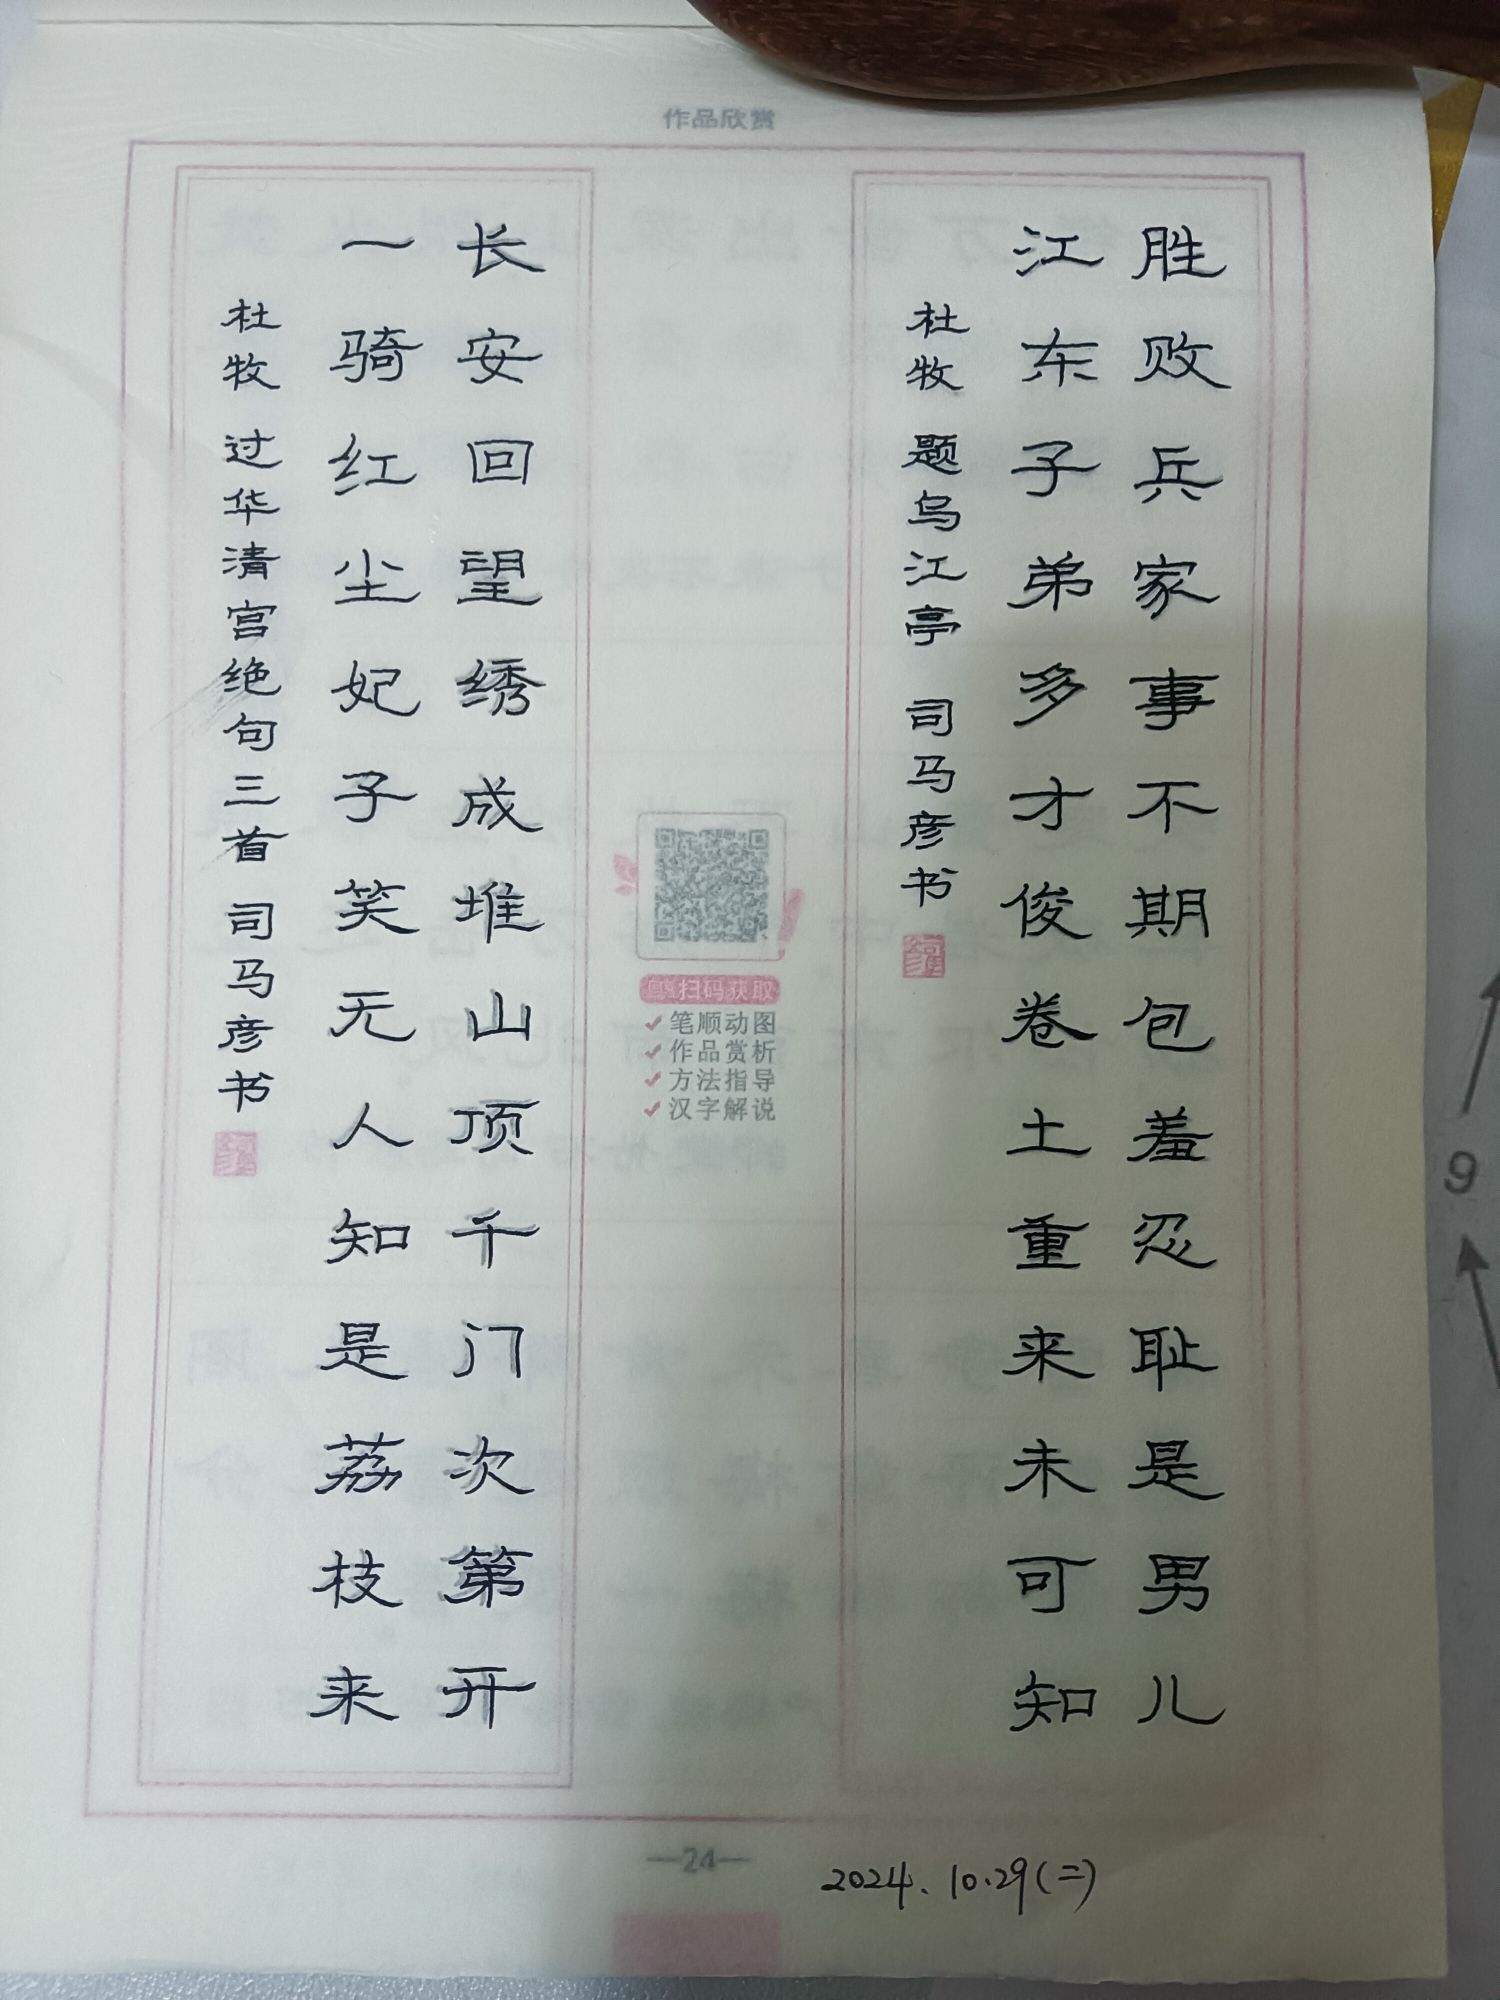 作品欣赏
胜败兵家事不期包羞忍耻是男儿
江东子弟多才俊卷土重来未可知
杜牧 题乌江亭 司马彦书
扫码获取
笔顺动图
作品赏析
方法指导
汉字解说
长安回望绣成堆山顶千门次第开
一骑红尘妃子笑无人知是荔枝来
杜牧 过华清宫绝句三首 司马彦书
—24—
2024.10.29(二)
9